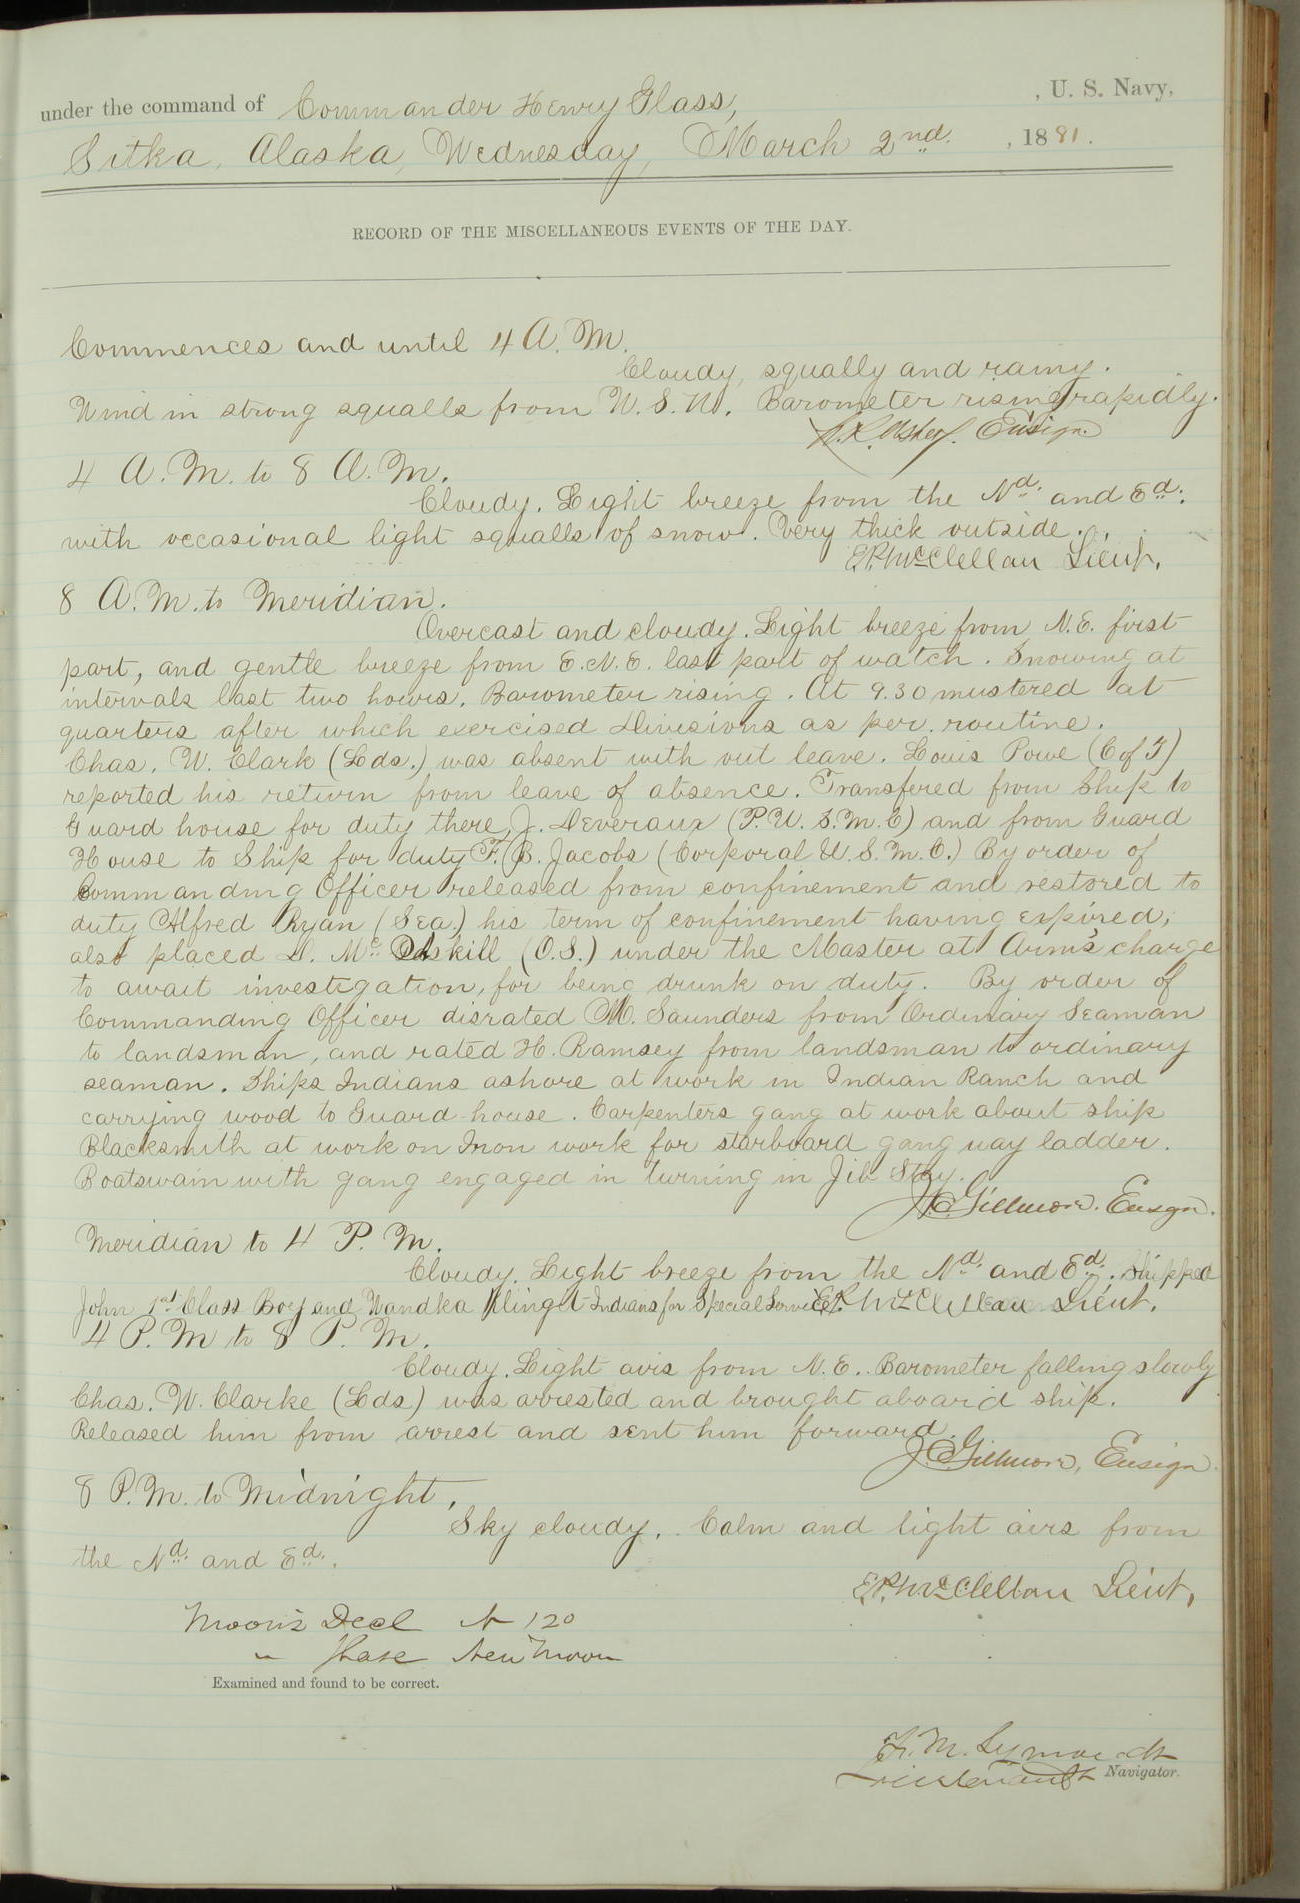 under the command of Commander Henry Glass, , U. S. Navy,
Sitka, Alaska, Wednesday, March 2nd. , 1881.
RECORD OF THE MISCELLANEOUS EVENTS OF THE DAY.
Commences and until 4 A. M.
Cloudy, squally and rainy.
Wind in strong squalls from W. S. W. Barometer rising rapidly.
Ensign.
4 A. M. to 8 A. M.
Cloudy. Light breeze from the Nd. and Ed.
with occasional light squalls of snow. Very thick outside.
E.P. McClellan Lieut.
8 A. M. to Meridian.
Overcast and cloudy. Light breeze from N.E. first
part, and gentle breeze from E.N.E. last part of watch. Snowing at
intervals last two hours. Barometer rising. At 9.30 mustered at
quarters after which exercised Divisions as per routine.
Chas. W. Clark (Lds.) was absent with out leave. Louis Powe (C of T)
reported his return from leave of absence. Transfered from Ship to
Guard house for duty there, J. Deveraux (P. U. S. M. C) and from Guard
House to Ship for duty F. B. Jacobs (Corporal U. S. M. C.) By order of
Commanding Officer released from confinement and restored to
duty Alfred Ryan (Sea.) his term of confinement having expired;
also placed D. Mc Caskill (O.S.) under the Master at Arms' charge
to await investigation, for being drunk on duty. By order of
Commanding Officer disrated M. Saunders from Ordinary Seaman
to landsman, and rated H. Ramsey from landsman to ordinary
seaman. Ships Indians ashore at work in Indian Ranch and
carrying wood to Guard-house. Carpenters gang at work about ship
Blacksmith at work on Iron work for starboard gang way ladder.
Boatswain with gang engaged in turning in Jib Stay.
J.C. Gillmore. Ensign.
Meridian to 4 P. M.
Cloudy. Light breeze from the Nd. and Ed. Shipped
John 1st Class Boy and Wandka Klinget Indians for Special Service. E.P. McClellan Lieut.
4 P. M to 8 P. M.
Cloudy. Light airs from N. E. Barometer falling slowly
Chas. W. Clarke (Lds) was arrested and brought aboard ship.
Released him from arrest and sent him forward.
J.C. Gillmore, Ensign.
8 P. M. to Midnight.
Sky cloudy. Calm and light airs from
the Nd. and Ed.
E.P. McClellan Lieut.
Moon's Decl N 120
" Phase New Moon
Examined and found to be correct.
F. M. Symonds
Lieutenant Navigator.